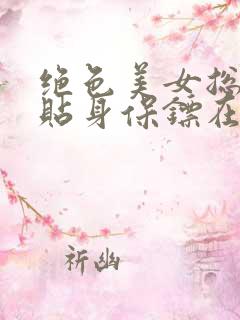 绝色美女总
贴身保镖在
祈幽